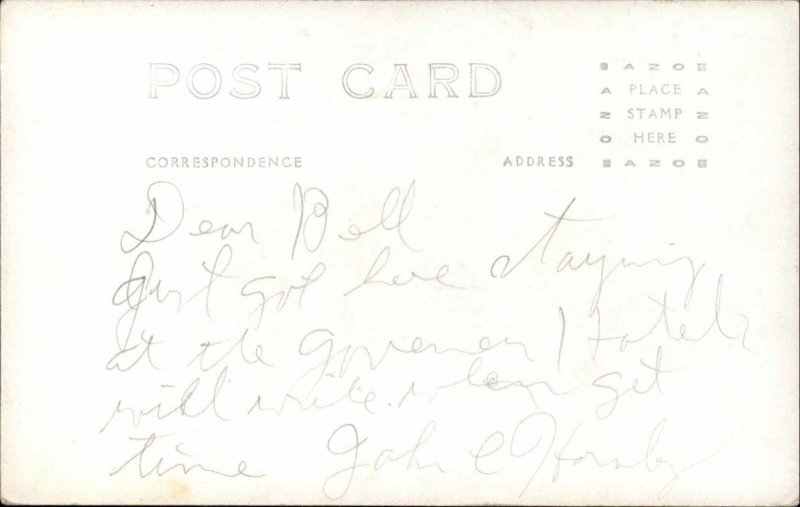 POST CARD
CORRESPONDENCE
ADDRESS
AZO
PLACE
STAMP
HERE
AZO
Dear Bell
Just got here staying
at the Governer Hotel
will write when get
time John C Hornby